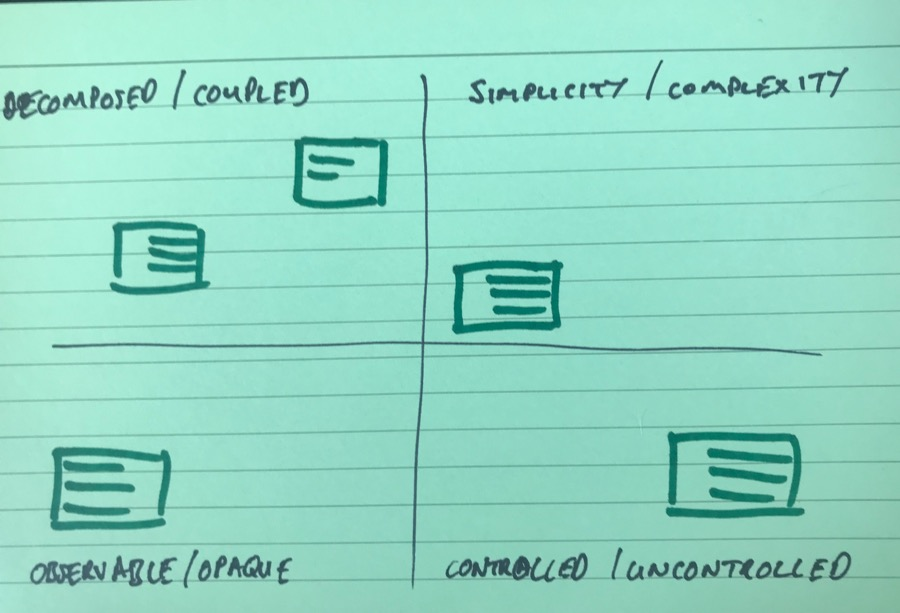 DECOMPOSED / COUPLED
SIMPLICITY / COMPLEXITY
OBSERVABLE / OPAQUE
CONTROLLED / UNCONTROLLED